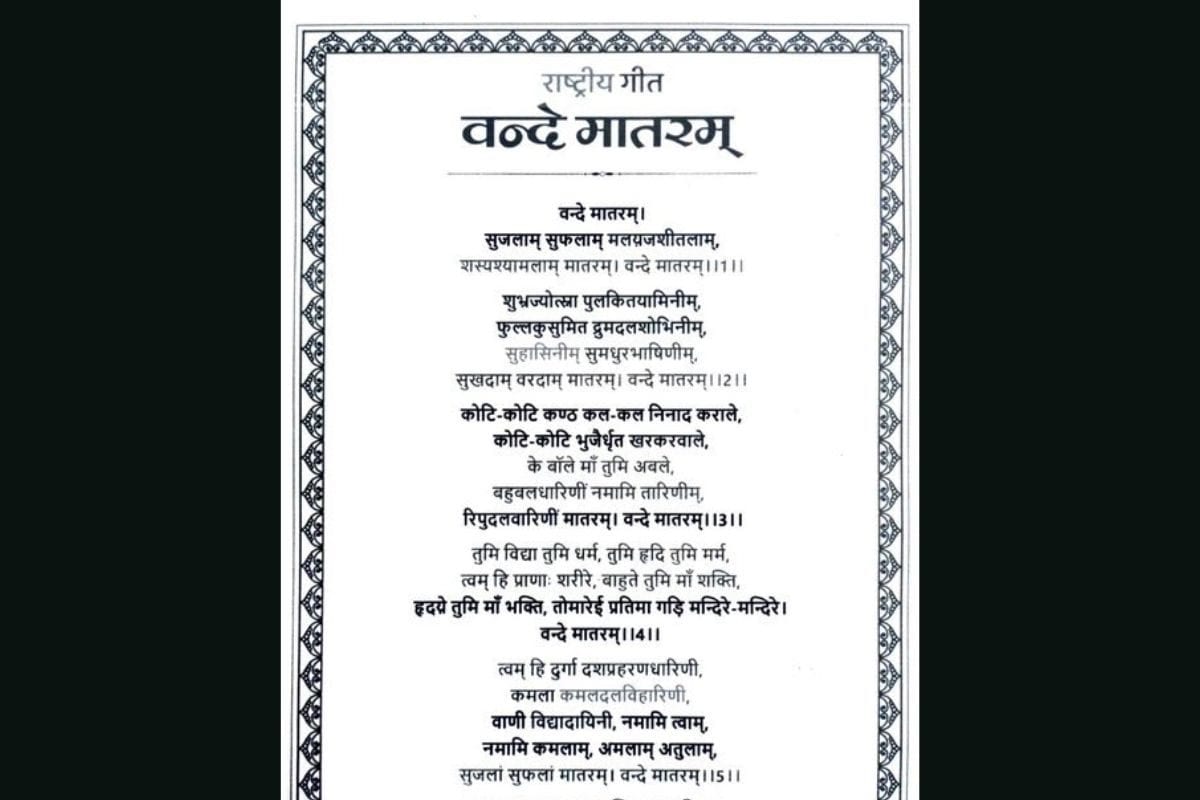 राष्ट्रीय गीत
वन्दे मातरम्
वन्दे मातरम्।
सुजलाम् सुफलाम् मलयजशीतलाम्,
शस्यश्यामलाम् मातरम्। वन्दे मातरम्।।1।।
शुभ्रज्योत्स्ना पुलकितयामिनीम्,
फुल्लकुसुमित द्रुमदलशोभिनीम्,
सुहासिनीम् सुमधुरभाषिणीम्,
सुखदाम् वरदाम् मातरम्। वन्दे मातरम्।।2।।
कोटि-कोटि कण्ठ कल-कल निनाद कराले,
कोटि-कोटि भुजैर्धृत खरकरवाले,
के बॉले माँ तुमि अबले,
बहुबलधारिणीं नमामि तारिणीम्,
रिपुदलवारिणीं मातरम्। वन्दे मातरम्।।3।।
तुमि विद्या तुमि धर्म, तुमि हृदि तुमि मर्म,
त्वम् हि प्राणाः शरीरे, बाहुते तुमि माँ शक्ति,
हृदय़े तुमि माँ भक्ति, तोमारेई प्रतिमा गड़ि मन्दिरे-मन्दिरे।
वन्दे मातरम्।।4।।
त्वम् हि दुर्गा दशप्रहरणधारिणी,
कमला कमलदलविहारिणी,
वाणी विद्यादायिनी, नमामि त्वाम्,
नमामि कमलाम्, अमलाम् अतुलाम्,
सुजलां सुफलां मातरम्। वन्दे मातरम्।।5।।